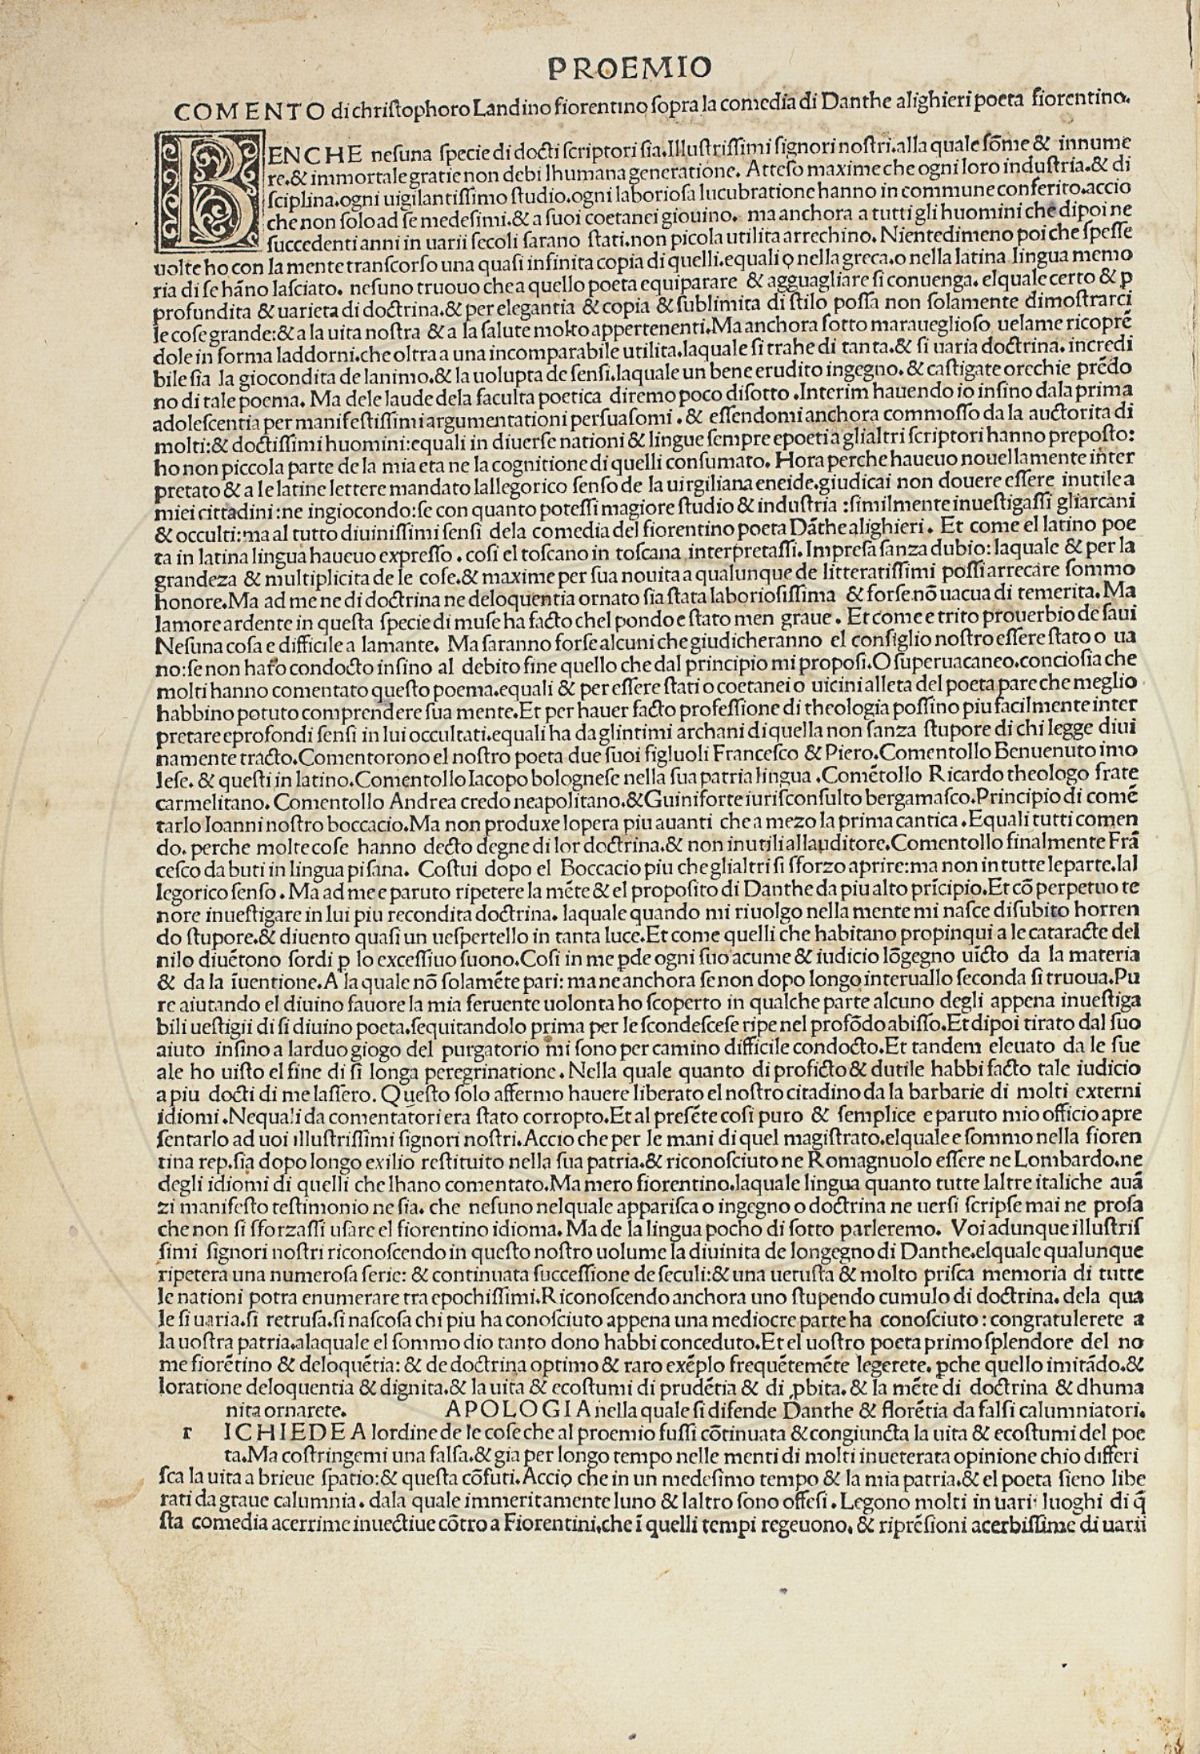 PROEMIO
COMENTO di chriſtophoro Landino fiorentino ſopra la comedia di Danthe alighieri poeta fiorentino.
BENCHE neſuna ſpecie di docti ſcriptori ſia. Illuſtriſſimi ſignori noſtri. alla quale ſõme & innume
re. & immortale gratie non debi lhumana generatione. Atteſo maxime che ogni loro induſtria. & di
ſciplina. ogni uigilantiſſimo ſtudio. ogni laborioſa lucubratione hanno in commune conferito. accio
che non ſolo ad ſe medeſimi. & a ſuoi coetanei giouino. ma anchora a tutti gli huomini che dipoi ne
ſuccedenti anni in uarii ſecoli ſarano ſtati. non picola utilita arrechino. Nientedimeno poi che ſpeſſe
uolte ho con la mente tranſcorſo una quaſi infinita copia di quelli. equali o nella greca. o nella latina lingua memo
ria di ſe hãno laſciato. neſuno truouo che a quello poeta equiparare & agguagliare ſi conuenga. elquale certo & ꝑ
profundita & uarieta di doctrina. & per elegantia & copia & ſublimita di ſtilo poſſa non ſolamente dimoſtrarci
le coſe grande: & a la uita noſtra & a la ſalute molto appertenenti. Ma anchora ſotto maraueglioſo uelame ricoprẽ
dole in forma laddorni. che oltra a una incomparabile utilita. laquale ſi trahe di tanta. & ſi uaria doctrina. incredi
bile ſia la giocondita de lanimo. & la uolupta de ſenſi. laquale un bene erudito ingegno. & caſtigate orechie prẽdo
no di tale poema. Ma dele laude dela faculta poetica diremo poco diſotto. Interim hauendo io inſino dala prima
adoleſcentia per manifeſtiſſimi argumentationi perſuaſomi. & eſſendomi anchora commoſſo da la auctorita di
molti: & doctiſſimi huomini: equali in diuerſe nationi & lingue ſempre epoeti a glialtri ſcriptori hanno prepoſto:
ho non piccola parte de la mia eta ne la cognitione di quelli conſumato. Hora perche haueuo nouellamente inter
pretato & a le latine lettere mandato lallegorico ſenſo de la uirgiliana eneide. giudicai non douere eſſere inutile a
miei cittadini: ne ingiocondo: ſe con quanto poteſſi magiore ſtudio & induſtria: ſimilmente inueſtigaſſi gliarcani
& occulti: ma al tutto diuiniſſimi ſenſi dela comedia del fiorentino poeta Dãthe alighieri. Et come el latino poe
ta in latina lingua haueuo expreſſo. coſi el toſcano in toſcana interpretaſſi. Impreſa ſanza dubio: laquale & per la
grandeza & multiplicita de le coſe. & maxime per ſua nouita a qualunque de litteratiſſimi poſſi arrecare ſommo
honore. Ma ad me ne di doctrina ne deloquentia ornato ſia ſtata laborioſiſſima & forſe. nõ uacua di temerita. Ma
lamore ardente in queſta ſpecie di muſe ha facto chel pondo e ſtato men graue. Et come e trito prouerbio de ſaui
Neſuna coſa e difficile a lamante. Ma ſaranno forſe alcuni che giudicheranno el conſiglio noſtro eſſere ſtato o ua
no: ſe non haro condocto inſino al debito fine quello che dal principio mi propoſi. O ſuperuacaneo. concioſia che
molti hanno comentato queſto poema. equali & per eſſere ſtati o coetanei o uicini alleta del poeta pare che meglio
habbino potuto comprendere ſua mente. Et per hauer facto profeſſione di theologia poſſino piu facilmente inter
pretare eprofondi ſenſi in lui occultati. equali ha da glintimi archani di quella non ſanza ſtupore di chi legge diui
namente tracto. Comentorono el noſtro poeta due ſuoi figluoli Franceſco & Piero. Comentollo Benuenuto imo
leſe. & queſti in latino. Comentollo Iacopo bologneſe nella ſua patria lingua. Comẽtollo Ricardo theologo frate
carmelitano. Comentollo Andrea credo neapolitano. & Guiniforte iuriſconſulto bergamaſco. Principio di comẽ
tarlo Ioanni noſtro boccacio. Ma non produxe lopera piu auanti che a mezo la prima cantica. Equali tutti comen
do. perche molte coſe hanno decto degne di lor doctrina. & non inutili allauditore. Comentollo finalmente Frã
ceſco da buti in lingua piſana. Coſtui dopo el Boccacio piu che glialtri ſi ſforzo aprire: ma non in tutte le parte. lal
legorico ſenſo. Ma ad me e paruto ripetere la mẽte & el propoſito di Danthe da piu alto prĩcipio. Et cõ perpetuo te
nore inueſtigare in lui piu recondita doctrina. laquale quando mi riuolgo nella mente mi naſce diſubito horren
do ſtupore. & diuento quaſi un ueſpertello in tanta luce. Et come quelli che habitano propinqui a le cataracte del
nilo diuẽtono ſordi ꝑ lo exceſſiuo ſuono. Coſi in me ꝑde ogni ſuo acume & iudicio lõgegno uĩcto da la materia
& da la ĩuentione. A la quale nõ ſolamẽte pari: ma ne anchora ſe non dopo longo interuallo ſeconda ſi truoua. Pu
re aiutando el diuino fauore la mia feruente uolonta ho ſcoperto in qualche parte alcuno degli appena inueſtiga
bili ueſtigii di ſi diuino poeta. ſequitandolo prima per le ſcondeſceſe ripe nel profõdo abiſſo. Et dipoi tirato dal ſuo
aiuto inſino a larduo giogo del purgatorio mi ſono per camino difficile condocto. Et tandem eleuato da le ſue
ale ho uiſto el fine di ſi longa peregrinatione. Nella quale quanto di proficto & dutile habbi facto tale iudicio
a piu docti di me laſſero. Queſto ſolo affermo hauere liberato el noſtro citadino da la barbarie di molti externi
idiomi. Ne quali da comentatori era ſtato corropto. Et al preſẽte coſi puro & ſemplice e paruto mio officio apre
ſentarlo ad uoi illuſtriſſimi ſignori noſtri. Accio che per le mani di quel magiſtrato. elquale e ſommo nella fioren
tina rep. ſia dopo longo exilio reſtituito nella ſua patria. & riconoſciuto ne Romagnuolo eſſere ne Lombardo. ne
degli idiomi di quelli che lhano comentato. Ma mero fiorentino. laquale lingua quanto tutte laltre italiche auã
zi manifeſto teſtimonio ne ſia. che neſuno nelquale appariſca o ingegno o doctrina ne uerſi ſcripſe mai ne proſa
che non ſi ſforzaſſi uſare el fiorentino idioma. Ma de la lingua pocho di ſotto parleremo. Voi adunque illuſtriſ
ſimi ſignori noſtri riconoſcendo in queſto noſtro uolume la diuinita de longegno di Danthe. elquale qualunque
ripetera una numeroſa ſerie: & continuata ſucceſſione de ſeculi: & una uetuſta & molto priſca memoria di tutte
le nationi potra enumerare tra epochiſſimi. Riconoſcendo anchora uno ſtupendo cumulo di doctrina. dela qua
le ſi uaria. ſi retruſa. ſi naſcoſa chi piu ha conoſciuto appena una mediocre parte ha conoſciuto: congratulerete a
la uoſtra patria. alaquale el ſommo dio tanto dono habbi conceduto. Et el uoſtro poeta primo ſplendore del no
me fiorẽtino & deloquẽtia: & de doctrina optimo & raro exẽplo frequẽtemẽte legerete. ꝑche quello imitãdo. &
loratione deloquentia & dignita. & la uita & ecoſtumi di prudẽtia & di ꝓbita. & la mẽte di doctrina & dhuma
nita ornarete. APOLOGIA nella quale ſi difende Danthe & florẽtia da falſi calumniatori.
r ICHIEDEA lordine de le coſe che al proemio fuſſi cõtinuata & congiuncta la uita & ecoſtumi del poe
ta. Ma coſtringemi una falſa. & gia per longo tempo nelle menti di molti inueterata opinione chio differi
ſca la uita a brieue ſpatio: & queſta cõfuti. Accio che in un medeſimo tempo & la mia patria. & el poeta ſieno libe
rati da graue calumnia. dala quale immeritamente luno & laltro ſono offeſi. Legono molti in uari luoghi di q̃
ſta comedia acerrime inuectiue cõtro a Fiorentini. che ĩ quelli tempi regeuono. & riprẽſioni acerbiſſime di uarii